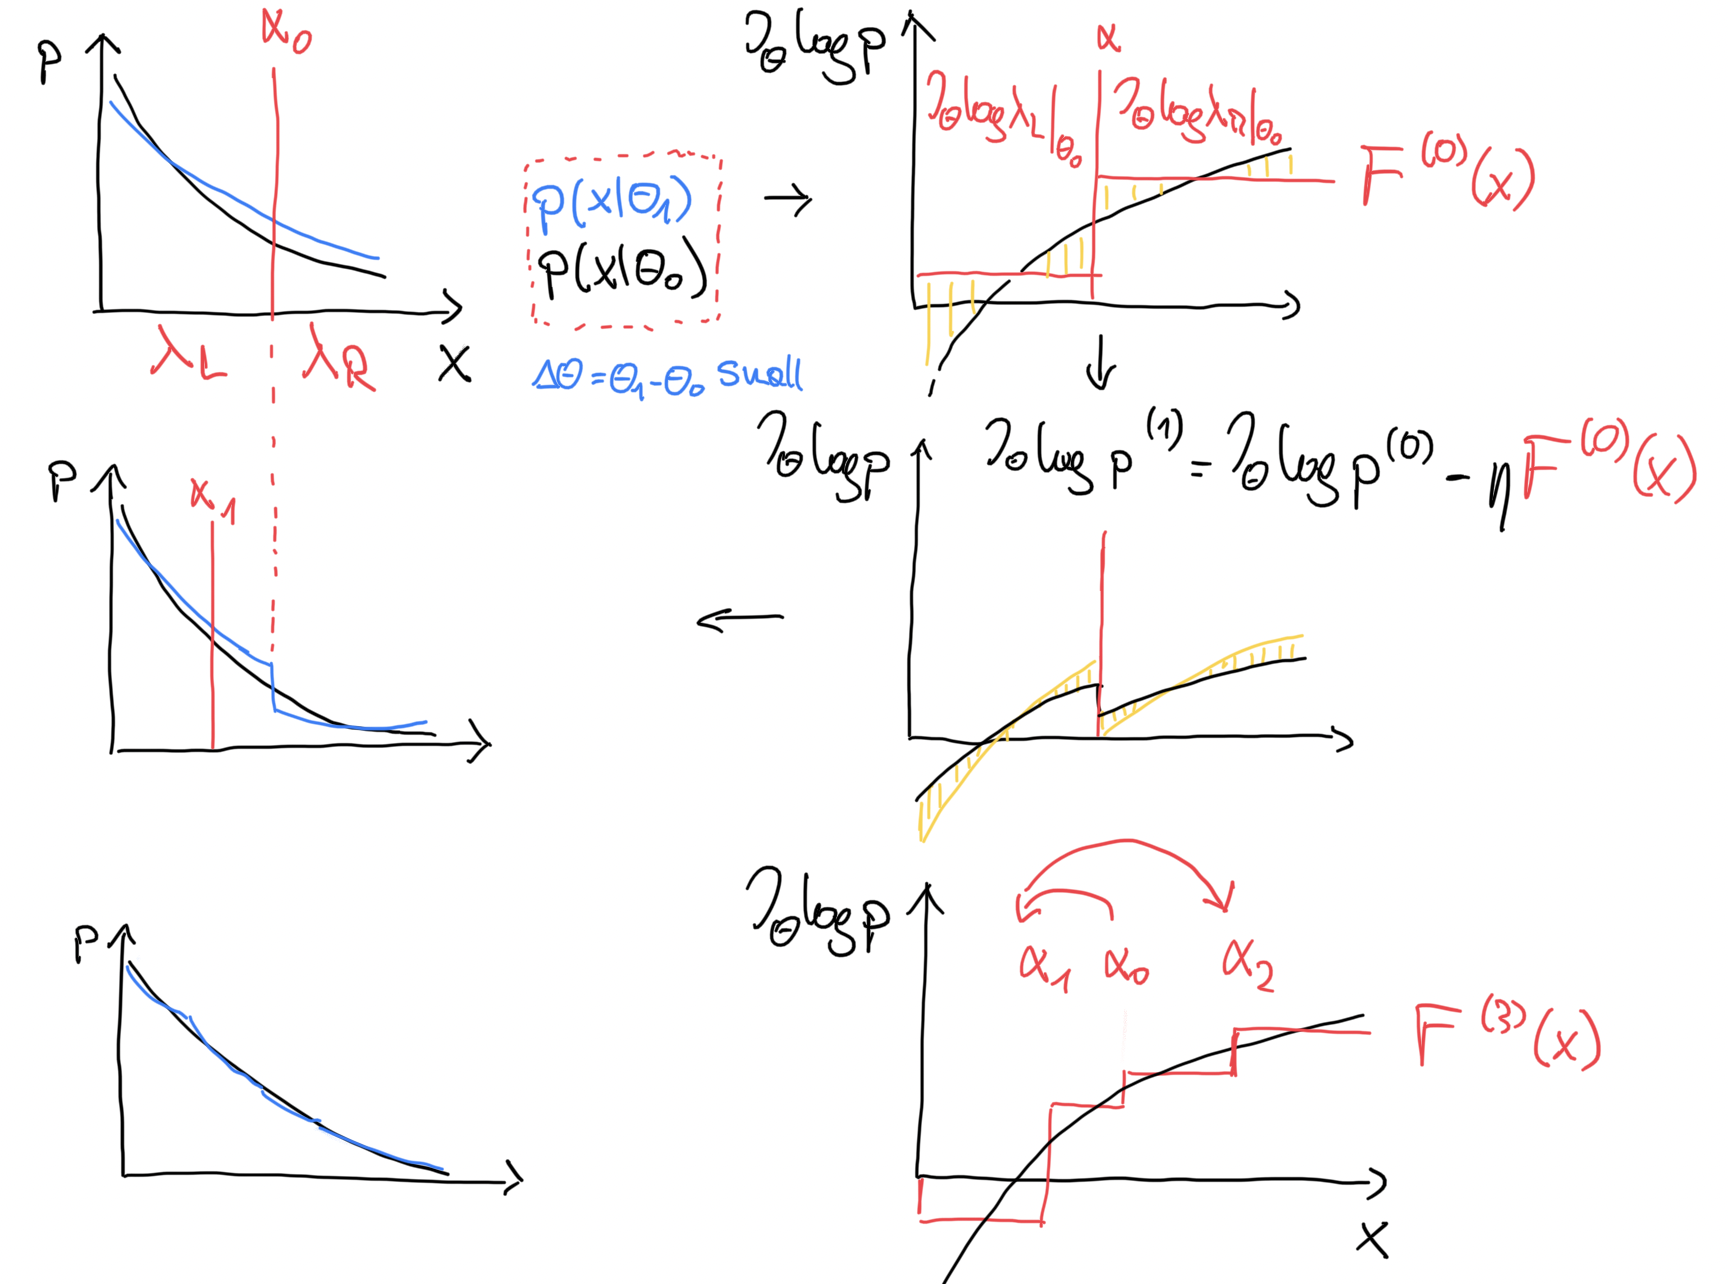 p
α₀
λ_L
λ_R
x
p(x|θ₁)
p(x|θ₀)
Δθ=θ₁-θ₀ small
∂_θ log p
α
∂_θ log λ_L|_θ₀
∂_θ log λ_R|_θ₀
F⁽⁰⁾(x)
∂_θ log p
∂_θ log p⁽¹⁾ = ∂_θ log p⁽⁰⁾ - η F⁽⁰⁾(x)
p
α₁
p
∂_θ log p
α₁
α₀
α₂
F⁽³⁾(x)
x